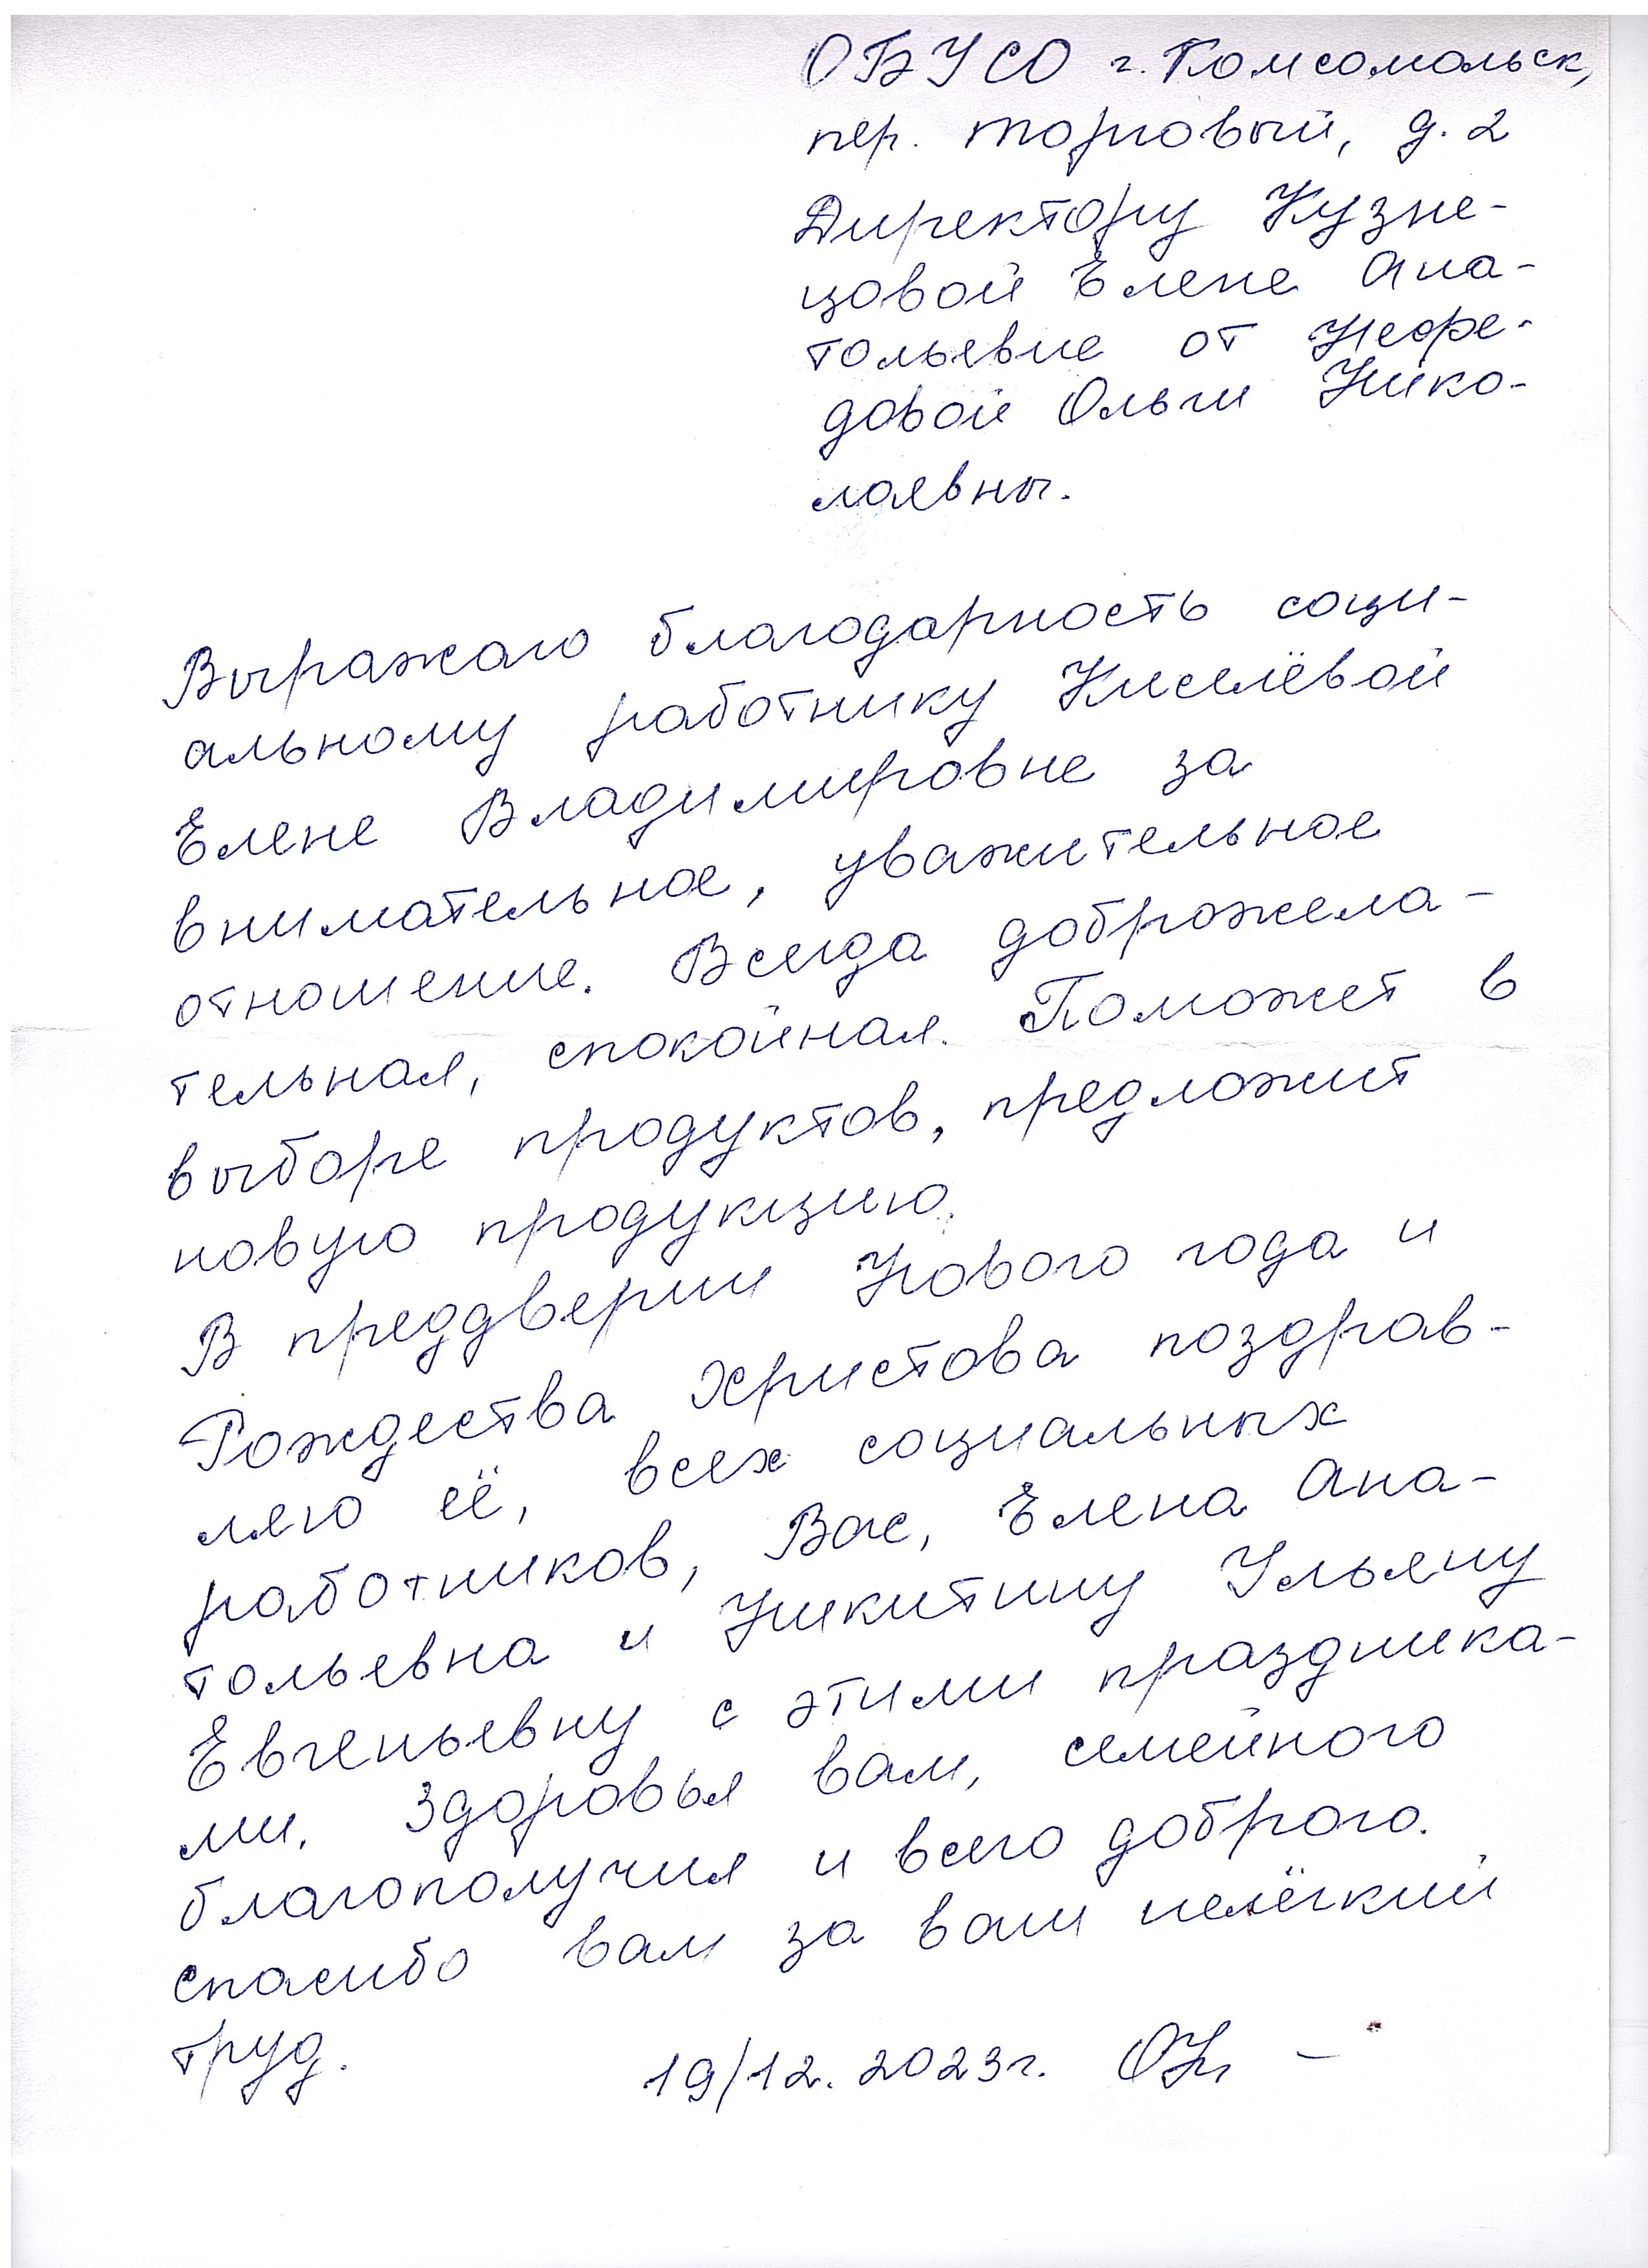 ОБУСО г. Комсомольск,
пер. торговый, д. 2
Директору Кузне-
цовой Елене Ана-
тольевне от Нефе-
довой Ольги Нико-
лаевны.
Выражаю благодарность соци-
альному работнику Киселёвой
Елене Владимировне за
внимательное, уважительное
отношение. Всегда доброжела-
тельная, спокойная. Поможет в
выборе продуктов, предложит
новую продукцию.
В преддверии Нового года и
Рождества Христова поздрав-
ляю её, всех социальных
работников, Вас, Елена Ана-
тольевна и Никитину Ульяну
Евгеньевну с этими праздника-
ми. Здоровья вам, семейного
благополучия и всего доброго.
спасибо вам за ваш нелёгкий
труд.
19/12. 2023г.